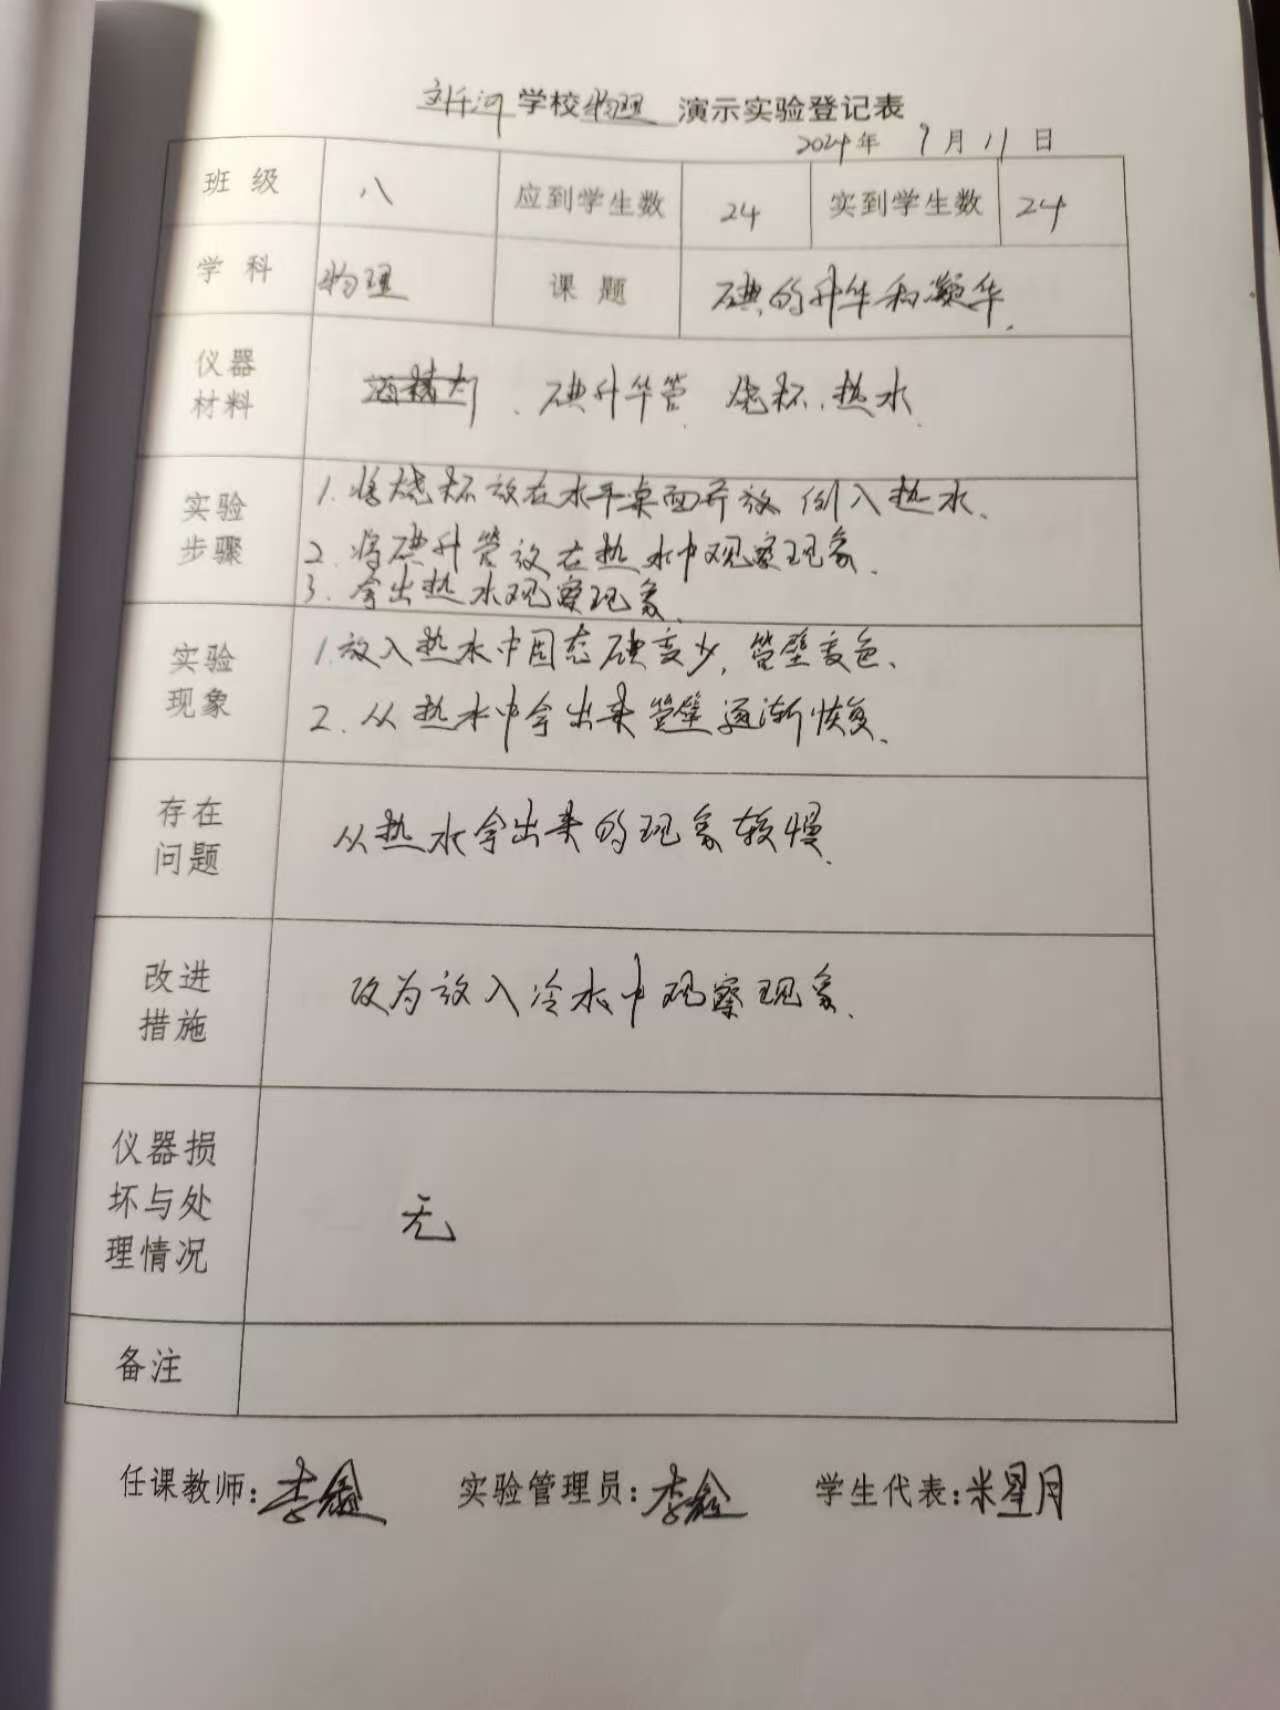 学校物理 演示实验登记表
2024年 9月11日
班 级 八 应到学生数 24 实到学生数 24
学 科 物理 课 题 碘的升华和凝华.
仪器
材料
、碘升华管 烧杯、热水.
实验
步骤
1. 将烧杯放在水平桌面并放 倒入热水、
2. 将碘升管放在热水中观察现象.
3. 拿出热水观察现象.
实验
现象
1.放入热水中固态碘变少, 管壁变色、
2. 从热水中拿出来管壁逐渐恢复、
存在
问题
从热水拿出来的现象较慢.
改进
措施
改为放入冷水中观察现象、
仪器损
坏与处
理情况
无
备注
任课教师:李鑫 实验管理员:李鑫 学生代表:米星月